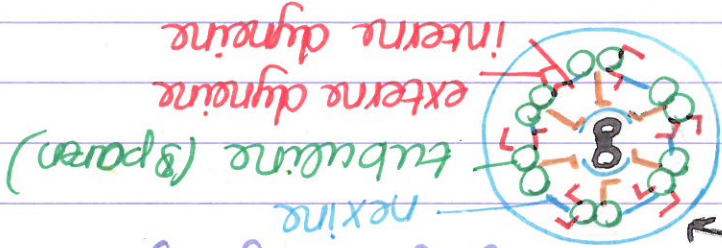 nexine
tubuline (8 paren)
externe dyneine
interne dyneine